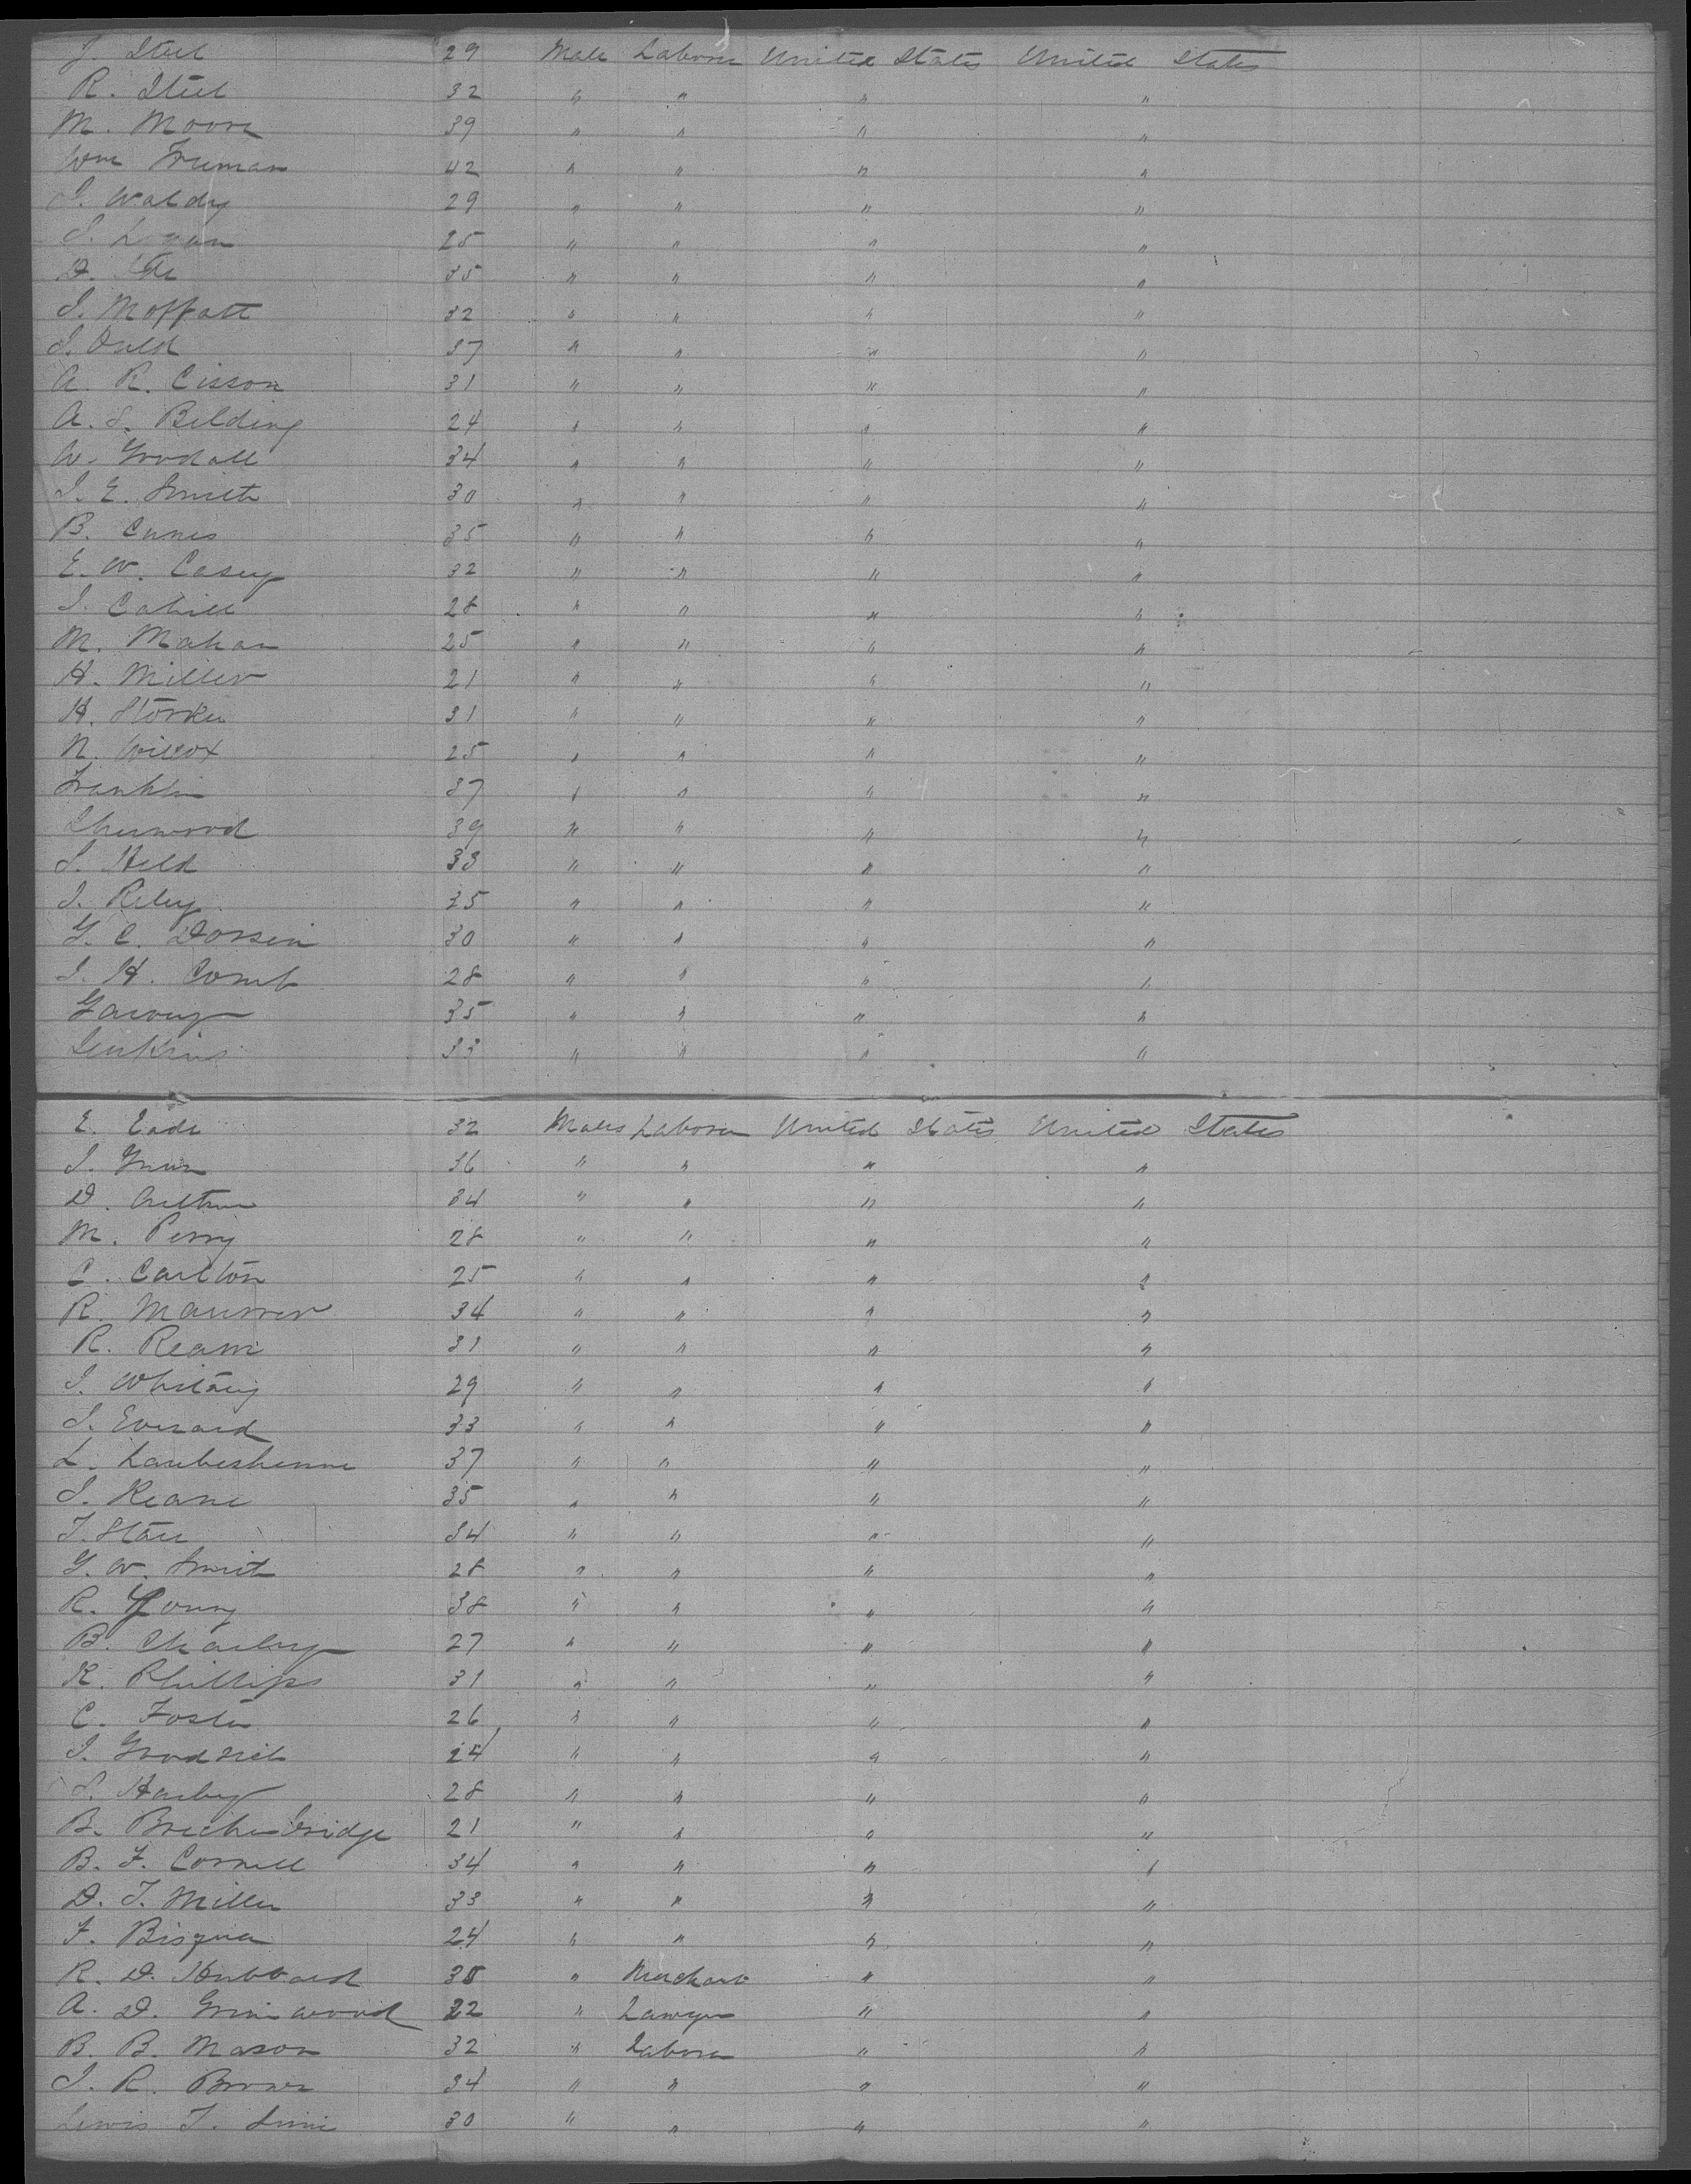 J. Steel 29 Male Laborer United States United States
R. Steel 32 " " " "
M. Moore 39 " " " "
Wm Freeman 42 " " " "
J. Waldy 29 " " " "
S. Logan 25 " " " "
D. 35 " " " "
J. Moffatt 32 " " " "
J. Auld 37 " " " "
A. R. Cisson 31 " " " "
A. S. Belding 24 " " " "
W. Goodall 34 " " " "
J. E. Smith 30 " " " "
B. 35 " " " "
E. W. Casey 32 " " " "
J. Cahill 28 " " " "
M. Mahan 25 " " " "
H. Miller 21 " " " "
H. 31 " " " "
N. Wilcox 25 " " " "
Franklin 37 " " " "
Sherwood 39 " " " "
S. Held 33 " " " "
J. Riley 35 " " " "
G. C. 30 " " " "
J. H. Comb 28 " " " "
Garvey 35 " " " "
Jenkins 33 " " " "
E. Eade 32 Males Laborer United States United States
J. 36 " " " "
D. 34 " " " "
M. Perry 28 " " " "
C. Carlton 25 " " " "
R. 34 " " " "
R. Ream 31 " " " "
J. Whitney 29 " " " "
J. Everard 33 " " " "
L. 37 " " " "
J. Keane 35 " " " "
T. Starr 34 " " " "
G. W. Smith 28 " " " "
R. Young 38 " " " "
B. Charley 27 " " " "
R. Phillips 31 " " " "
C. Foster 26 " " " "
J. Goodrich 24 " " " "
S. Harley 28 " " " "
B. Breckenbridge 21 " " " "
B. F. Cornell 34 " " " "
D. T. Miller 33 " " " "
F. 24 " " " "
R. D. Hubbard 35 " Merchant " "
A. D. Grimwood 22 " Lawyer " "
B. B. Mason 32 " Laborer " "
J. R. Brown 34 " " " "
Lewis T. 30 " " " "